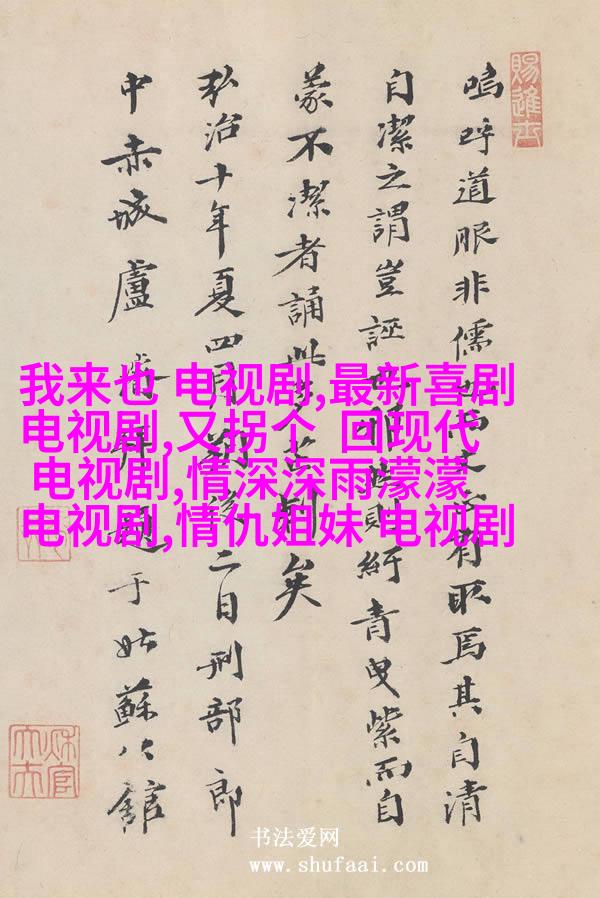 賜進士
嗚呼道服非儒有取焉其自清
自潔之謂豈誣則紆青曳紫而自
蒙不潔者誦此矣
弘治十年夏四月後二日刑部郎
中赤城盧題于姑蘇公館
我来也 电视剧,最新喜剧
电视剧,又拐个 回现代
电视剧,情深深雨濛濛
电视剧,情仇姐妹 电视剧
书法爱网
www.shufaai.com